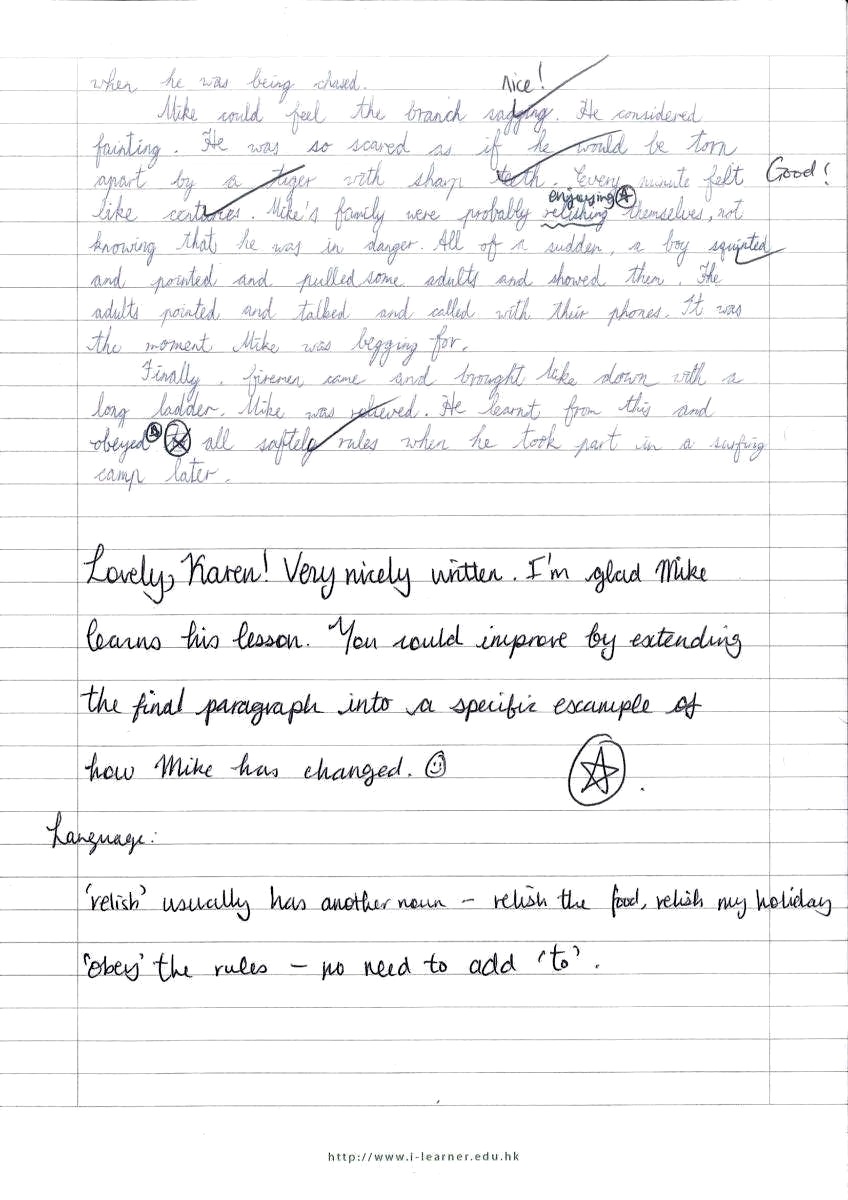 when he was being chased.
Nice!
Mike could feel the branch sagging. He considered
fainting. He was so scared as if he would be torn
apart by a tiger with sharp teeth. Every minute felt
Good!
enjoying
like centuries. Mike's family were probably relishing themselves, not
knowing that he was in danger. All of a sudden, a boy squinted
and pointed and pulled some adults and showed them. The
adults pointed and talked and called with their phones. It was
the moment Mike was begging for.
Finally, firemen came and brought Mike down with a
long ladder. Mike was relieved. He learnt from this and
obeyed to all saftely rules when he took part in a surfing
camp later.
Lovely, Karen! Very nicely written. I'm glad Mike
learns his lesson. You could improve by extending
the final paragraph into a specific example of
how Mike has changed. ☺
Language:
'relish' usually has another noun – relish the food, relish my holiday
'obey' the rules – no need to add 'to'.
http://www.i-learner.edu.hk